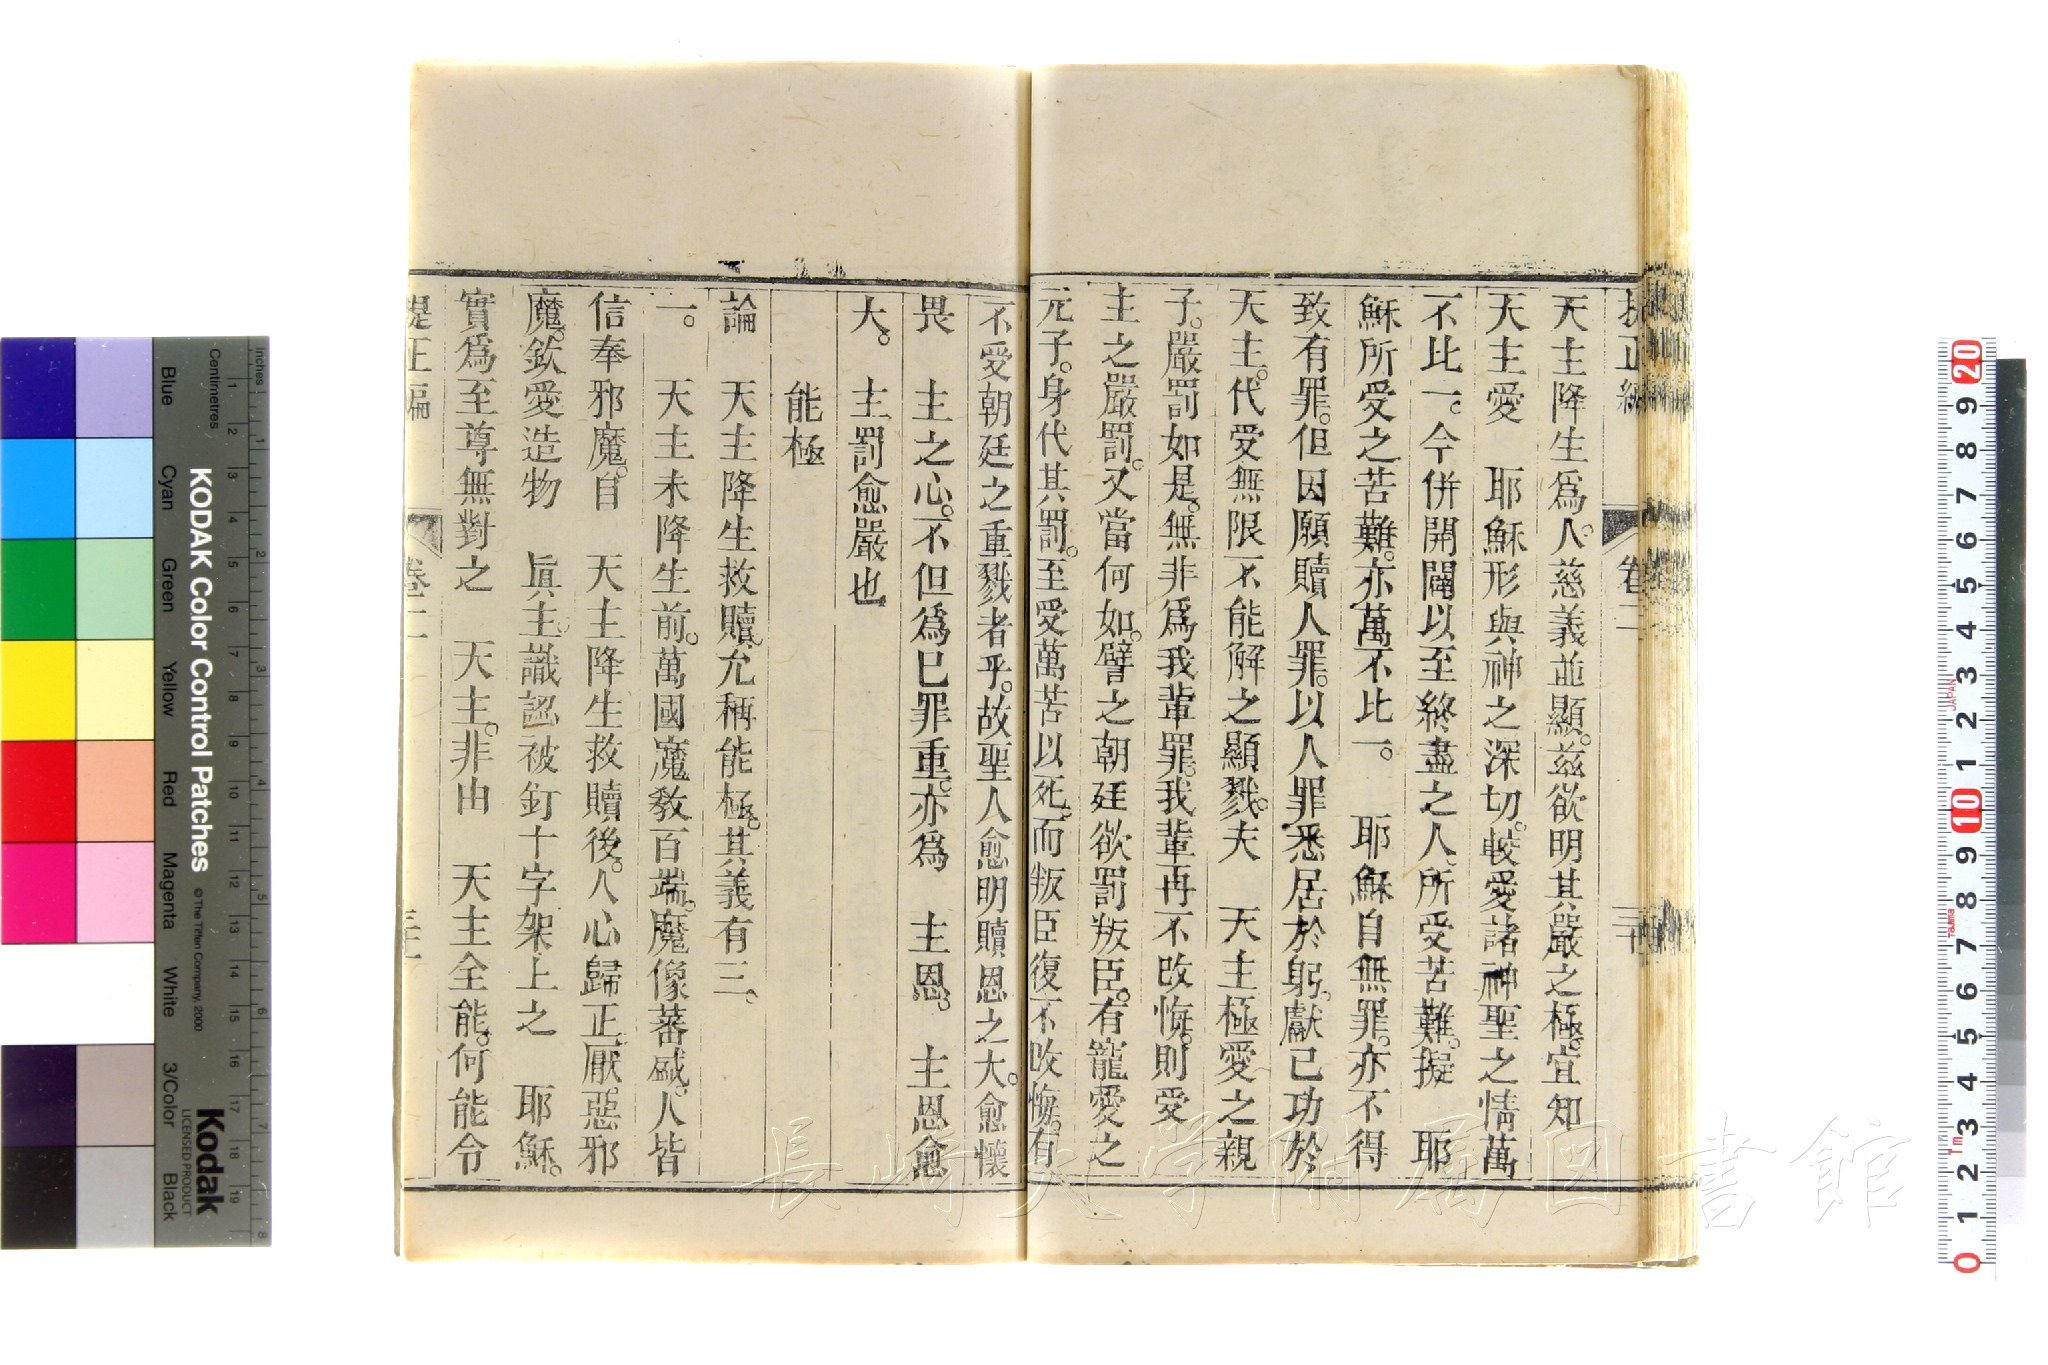 天主降生爲人。慈義並顯。茲欲明其嚴之極。宜知
天主愛　耶穌形與神之深切。較愛諸神聖之情萬
不比一。今併開闢以至終盡之人。所受苦難。擬　耶
穌所受之苦難。亦萬不比一。　耶穌自無罪。亦不得
致有罪。但因願贖人罪。以人罪悉居於躬。獻己功於
天主。代受無限不能解之顯戮。夫　天主極愛之親
子。嚴罰如是。無非爲我輩罪。我輩再不改悔。則愛
主之嚴罰。又當何如。譬之朝廷欲罰叛臣。有寵愛之
元子。身代其罰。至受萬苦以死。而叛臣復不改悔。有
不愛朝廷之重戮者乎。故聖人愈明贖恩之大。愈懷
畏　主之心。不但爲已罪重。亦爲　主恩。　主恩愈
大。　主罰愈嚴也
能極
論　天主降生救贖。允稱能極。其義有三。
一。　天主未降生前。萬國魔敎百端。魔像蕃盛。人皆
信奉邪魔。自　天主降生救贖後。人心歸正厭惡邪
魔。欽愛造物　眞主。識認被釘十字架上之　耶穌。
實爲至尊無對之　天主。非由　天主全能。何能令
提正編　卷二
長崎大学附属図書館
KODAK Color Control Patches
© The Tiffen Company, 2000
Kodak
LICENSED PRODUCT
Blue Cyan Green Yellow Red Magenta White 3/Color Black
Centimetres
Inches
JAPAN